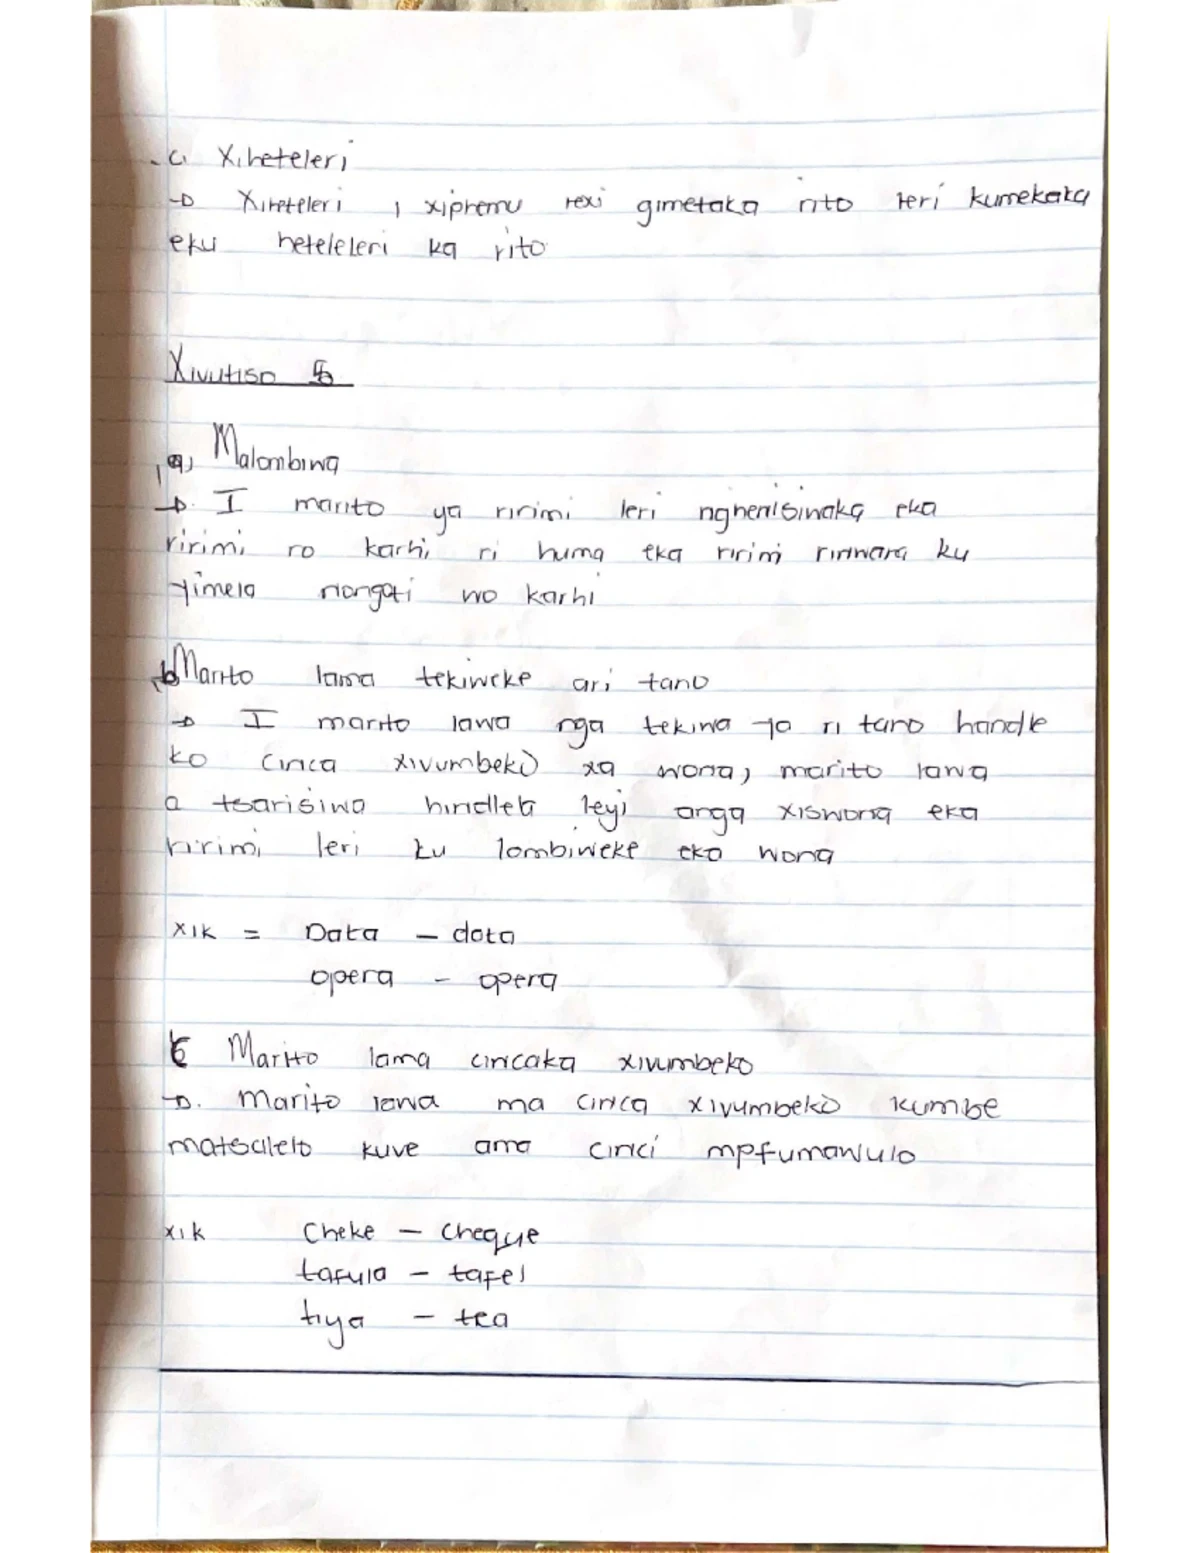 c, Xiheteleri
→ Xiheteleri, i xiphemu lexi gimetaka rito leri kumekaka
eku heteleleri ka rito
Xivutiso 5
a) Malombiwa
→ I marito ya ririmi leri nghenisiwaka eka
ririmi ro karhi, ri huma eka ririmi rinwana ku
yimela nongoti wo karhi
b) Marito lama tekiweke ari tano
→ I marito lawa nga tekiwa ya ri tano handle
ko cinca xivumbeko xa wona, marito lawa
a tsarisiwa hindlela leyi anga xiswona eka
ririmi leri ku lombiweke eka wona
xik = Data - data
opera - opera
c Marito lama cincaka xivumbeko
→ Marito lawa ma cinca xivumbeko kumbe
matsalelo kuve ama cinci mpfumawulo
xik Cheke - cheque
tafula - tafel
tiya - tea